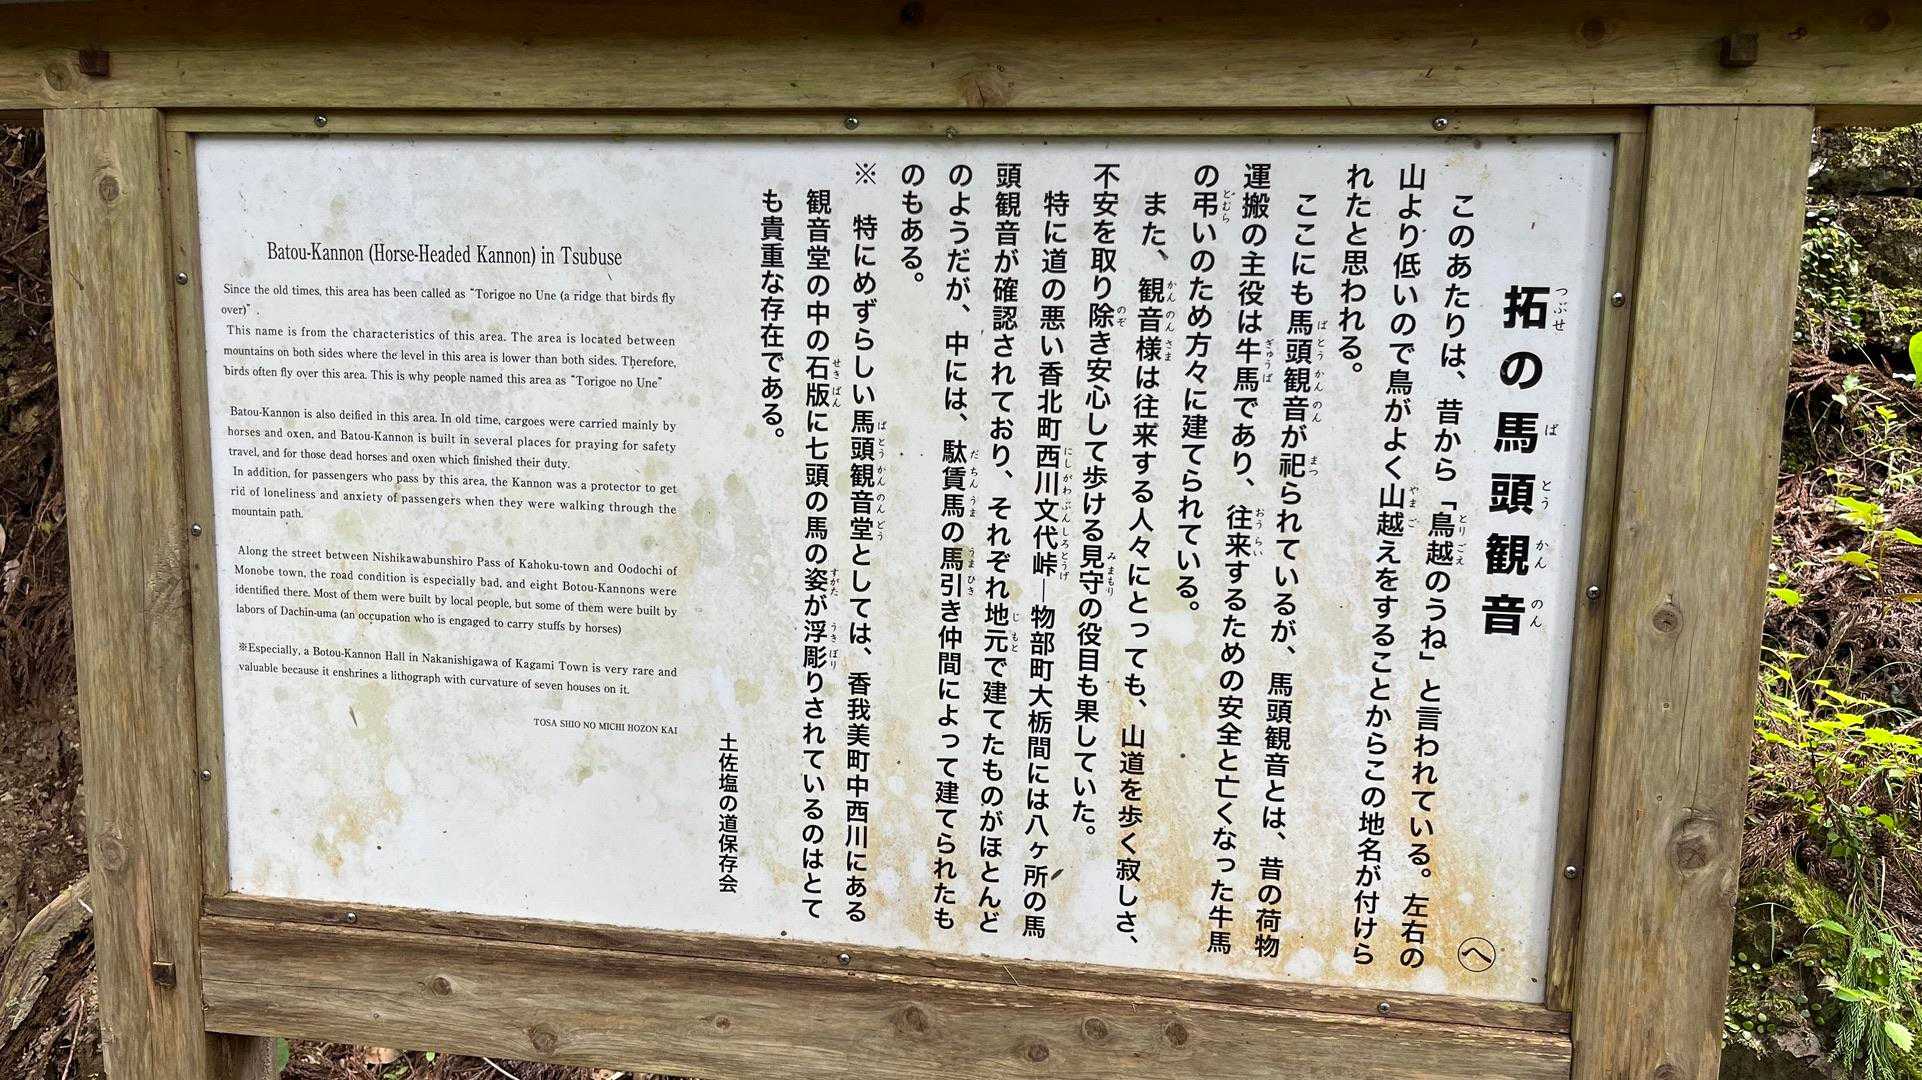 拓の馬頭観音
このあたりは、昔から「鳥越のうね」と言われている。左右の
山より低いので鳥がよく山越えをすることからこの地名が付けら
れたと思われる。
ここにも馬頭観音が祀られているが、馬頭観音とは、昔の荷物
運搬の主役は牛馬であり、往来するための安全と亡くなった牛馬
の弔いのため方々に建てられている。
また、観音様は往来する人々にとっても、山道を歩く寂しさ、
不安を取り除き安心して歩ける見守の役目も果していた。
特に道の悪い香北町西川文代峠―物部町大栃間には八ヶ所の馬
頭観音が確認されており、それぞれ地元で建てたものがほとんど
のようだが、中には、駄賃馬の馬引き仲間によって建てられたも
のもある。
※ 特にめずらしい馬頭観音堂としては、香我美町中西川にある
観音堂の中の石版に七頭の馬の姿が浮彫りされているのはとて
も貴重な存在である。
土佐塩の道保存会
へ
Batou-Kannon (Horse-Headed Kannon) in Tsubuse
Since the old times, this area has been called as "Torigoe no Une (a ridge that birds fly
over)" .
This name is from the characteristics of this area. The area is located between
mountains on both sides where the level in this area is lower than both sides. Therefore,
birds often fly over this area. This is why people named this area as "Torigoe no Une"
Batou-Kannon is also deified in this area. In old time, cargoes were carried mainly by
horses and oxen, and Batou-Kannon is built in several places for praying for safety
travel, and for those dead horses and oxen which finished their duty.
In addition, for passengers who pass by this area, the Kannon was a protector to get
rid of loneliness and anxiety of passengers when they were walking through the
mountain path.
Along the street between Nishikawabunshiro Pass of Kahoku-town and Oodochi of
Monobe town, the road condition is especially bad, and eight Botou-Kannons were
identified there. Most of them were built by local people, but some of them were built by
labors of Dachin-uma (an occupation who is engaged to carry stuffs by horses)
※Especially, a Botou-Kannon Hall in Nakanishigawa of Kagami Town is very rare and
valuable because it enshrines a lithograph with curvature of seven houses on it.
TOSA SHIO NO MICHI HOZON KAI